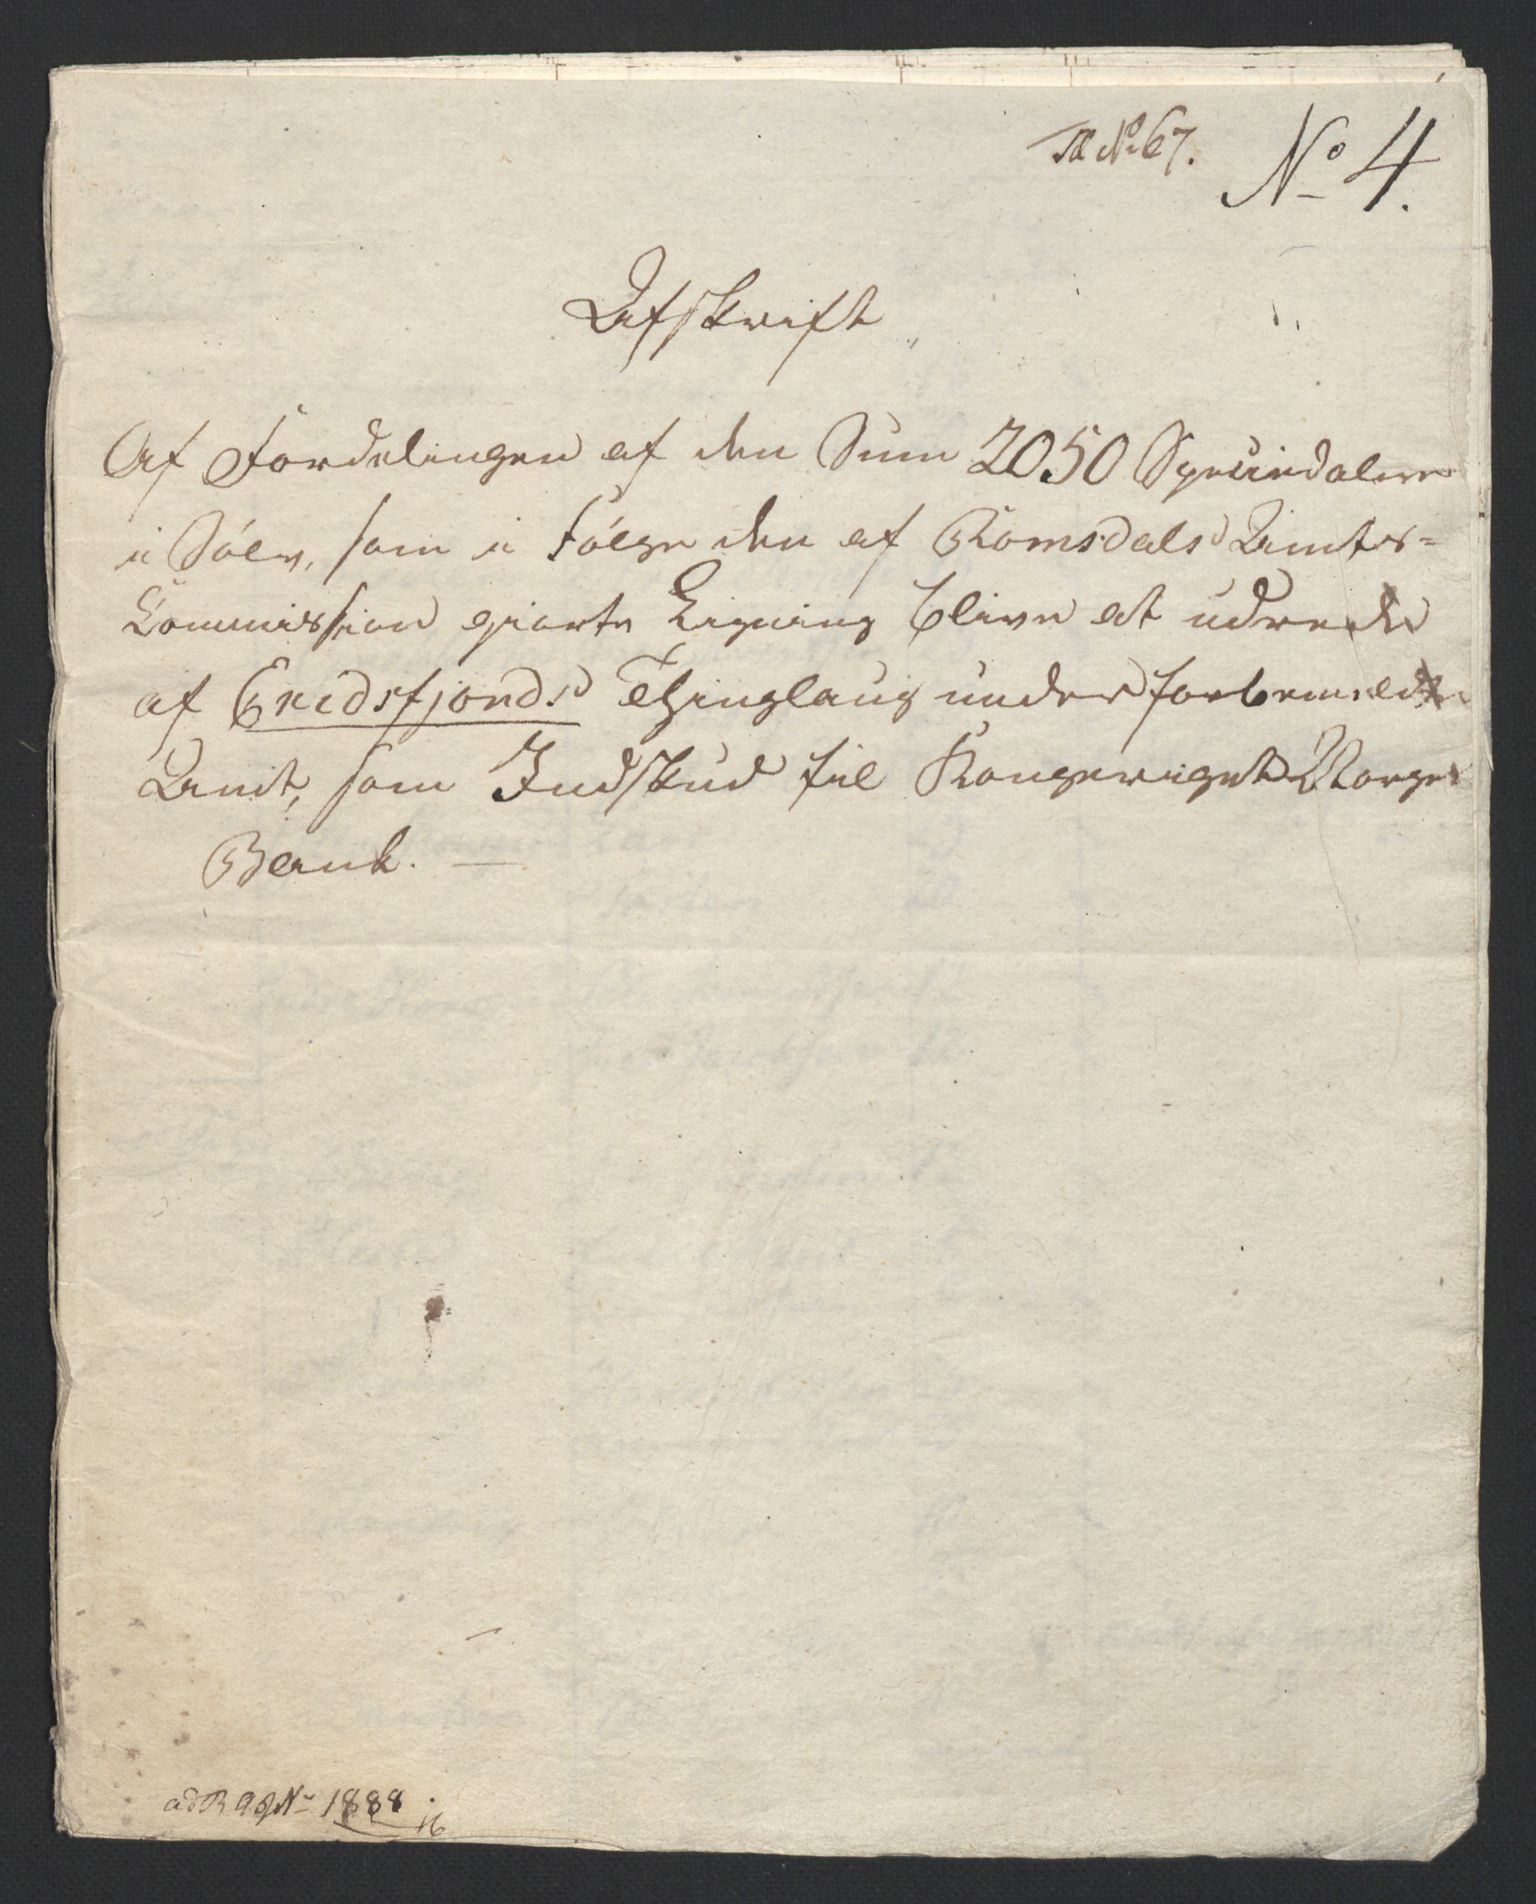 No 67.
No 4.
Afskrift
Af Fordelingen af den Sum 2050 Speciedaler
i Sølv, som i Følge den af Romsdals Amts-
Commission giorte Ligning bliver at udrede
af Eridsfjords Thinglaug under forbemeldte
Amt, som Indskud til Kongeriget Norges
Bank. —
No 1888
16